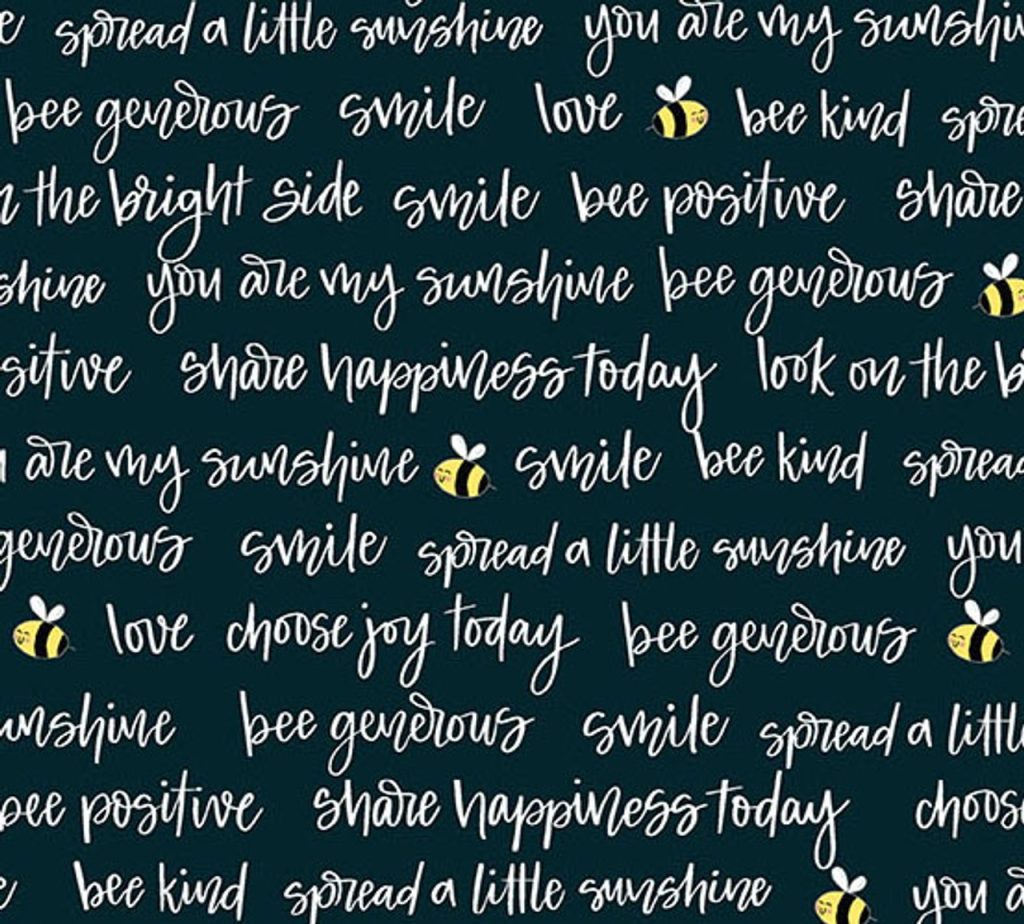 e spread a little sunshine you are my sunshin
bee generous smile love bee kind spre
n the bright side smile bee positive share
shine you are my sunshine bee generous
sitive share happiness today look on the b
u are my sunshine smile bee kind spread
generous smile spread a little sunshine you
love choose joy today bee generous
unshine bee generous smile spread a little
bee positive share happiness today choose
e bee kind spread a little sunshine you a